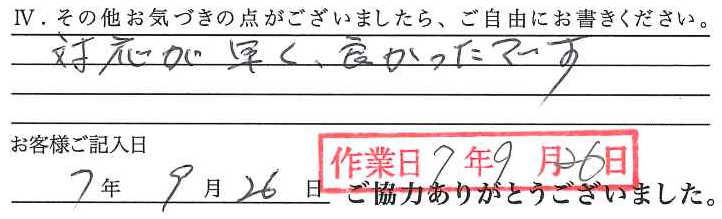 Ⅳ.その他お気づきの点がございましたら、ご自由にお書きください。
対応が早く、良かったでーす
お客様ご記入日
作業日7年9月26日
7年9月26日
ご協力ありがとうございました。